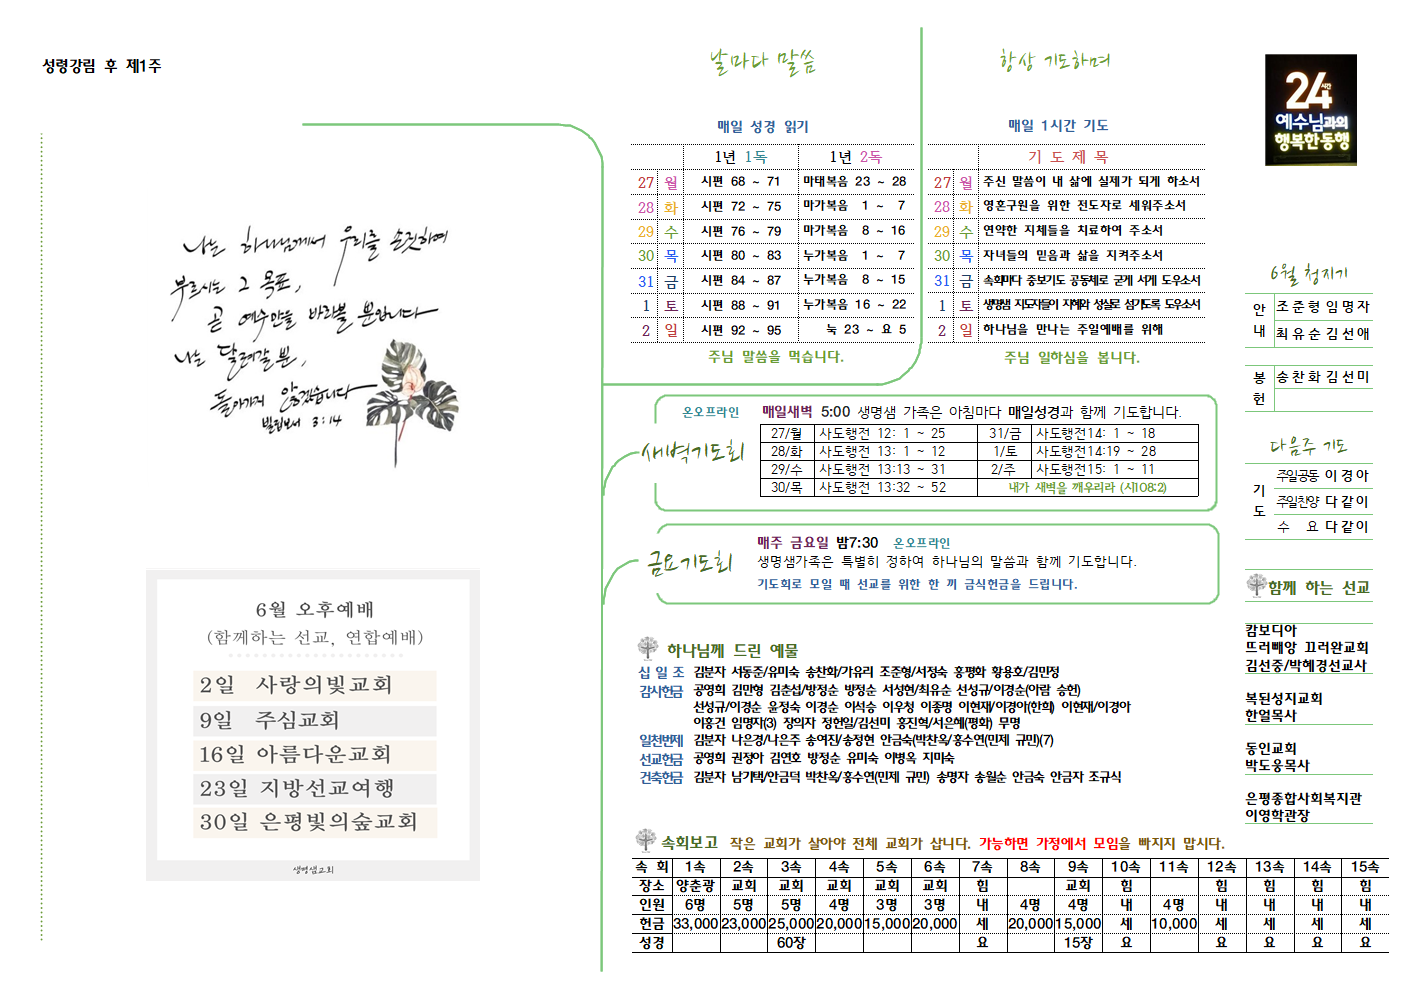 성령강림 후 제1주
나는 하나님께서 우리를 손짓하여
부르시는 그 목표,
곧 예수만을 바라볼 뿐입니다
나는 달려갈 뿐,
돌아가지 않겠습니다
빌립보서 3:14
6월 오후예배
(함께하는 선교, 연합예배)
2일 사랑의빛교회
9일 주심교회
16일 아름다운교회
23일 지방선교여행
30일 은평빛의숲교회
생명샘교회
날마다 말씀
매일 성경 읽기
1년 1독 1년 2독
27 월 시편 68 ~ 71 마태복음 23 ~ 28
28 화 시편 72 ~ 75 마가복음 1 ~ 7
29 수 시편 76 ~ 79 마가복음 8 ~ 16
30 목 시편 80 ~ 83 누가복음 1 ~ 7
31 금 시편 84 ~ 87 누가복음 8 ~ 15
1 토 시편 88 ~ 91 누가복음 16 ~ 22
2 일 시편 92 ~ 95 눅 23 ~ 요 5
주님 말씀을 먹습니다.
항상 기도하며
매일 1시간 기도
기 도 제 목
27 월 주신 말씀이 내 삶에 실제가 되게 하소서
28 화 영혼구원을 위한 전도자로 세워주소서
29 수 연약한 지체들을 치료하여 주소서
30 목 자녀들의 믿음과 삶을 지켜주소서
31 금 속회마다 중보기도 공동체로 굳게 서게 도우소서
1 토 생명샘 지도자들이 지혜와 성실로 섬기도록 도우소서
2 일 하나님을 만나는 주일예배를 위해
주님 일하심을 봅니다.
새벽기도회
온오프라인 매일새벽 5:00 생명샘 가족은 아침마다 매일성경과 함께 기도합니다.
27/월 사도행전 12: 1 ~ 25 31/금 사도행전14: 1 ~ 18
28/화 사도행전 13: 1 ~ 12 1/토 사도행전14:19 ~ 28
29/수 사도행전 13:13 ~ 31 2/주 사도행전15: 1 ~ 11
30/목 사도행전 13:32 ~ 52 내가 새벽을 깨우리라 (시108:2)
금요기도회
매주 금요일 밤7:30 온오프라인
생명샘가족은 특별히 정하여 하나님의 말씀과 함께 기도합니다.
기도회로 모일 때 선교를 위한 한 끼 금식헌금을 드립니다.
하나님께 드린 예물
십 일 조 김분자 서동준/유미숙 송찬화/가유리 조준형/서정숙 홍평화 황용호/김민정
감사헌금 공영희 김만형 김춘섭/방정순 방정순 서성현/최유순 선성규/이경순(아람 승헌)
선성규/이경순 윤정숙 이경순 이석승 이우청 이종명 이현재/이경아(한희) 이현재/이경아
이홍건 임명자(3) 장의자 정현일/김선미 홍진혁/서은혜(평화) 무명
일천번제 김분자 나은경/나은주 송여진/송정현 안금숙(박찬옥/홍수연(민제 규민)(7)
선교헌금 공영희 권정아 김연호 방정순 유미숙 이병옥 지미숙
건축헌금 김분자 남기택/안금덕 박찬옥/홍수연(민제 규민) 송명자 송월순 안금숙 안금자 조규식
속회보고 작은 교회가 살아야 전체 교회가 삽니다. 가능하면 가정에서 모임을 빠지지 맙시다.
속 회 1속 2속 3속 4속 5속 6속 7속 8속 9속 10속 11속 12속 13속 14속 15속
장소 양춘광 교회 교회 교회 교회 교회 힘 교회 힘 힘 힘 힘 힘
인원 6명 5명 5명 4명 3명 3명 내 4명 4명 내 4명 내 내 내 내
헌금 33,000 23,000 25,000 20,000 15,000 20,000 세 20,000 15,000 세 10,000 세 세 세 세
성경 60장 요 15장 요 요 요 요 요
24시간
예수님과의
행복한동행
6월 청지기
안내 조준형 임명자
최유순 김선애
봉헌 송찬화 김선미
다음주 기도
기도 주일공동 이경아
주일찬양 다같이
수 요 다같이
함께 하는 선교
캄보디아
뜨러빼앙 끄러완교회
김선중/박혜경선교사
복된성지교회
한얼목사
동인교회
박도웅목사
은평종합사회복지관
이영학관장